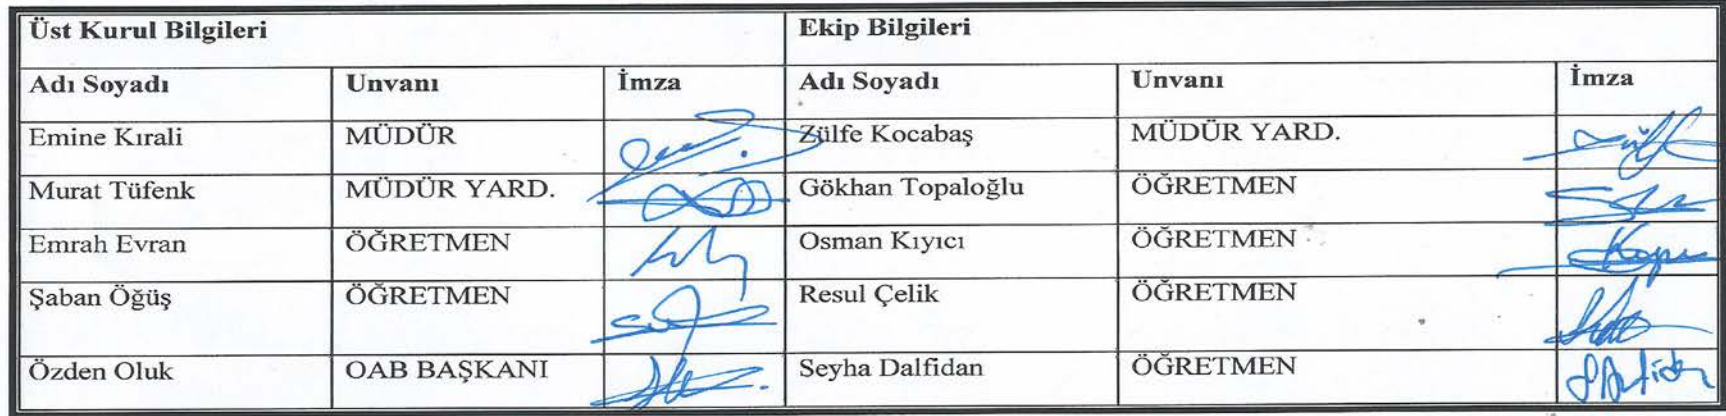 Üst Kurul Bilgileri Ekip Bilgileri
Adı Soyadı Unvanı İmza Adı Soyadı Unvanı İmza
Emine Kırali MÜDÜR Zülfe Kocabaş MÜDÜR YARD.
Murat Tüfenk MÜDÜR YARD. Gökhan Topaloğlu ÖĞRETMEN
Emrah Evran ÖĞRETMEN Osman Kıyıcı ÖĞRETMEN
Şaban Öğüş ÖĞRETMEN Resul Çelik ÖĞRETMEN
Özden Oluk OAB BAŞKANI Seyha Dalfidan ÖĞRETMEN